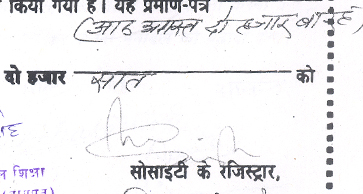 किया गया है। यह प्रमाण-पत्र
(आठ अगस्त दो हजार बारह)
दो हजार सात को
शिक्षा
सोसाइटी के रजिस्ट्रार,